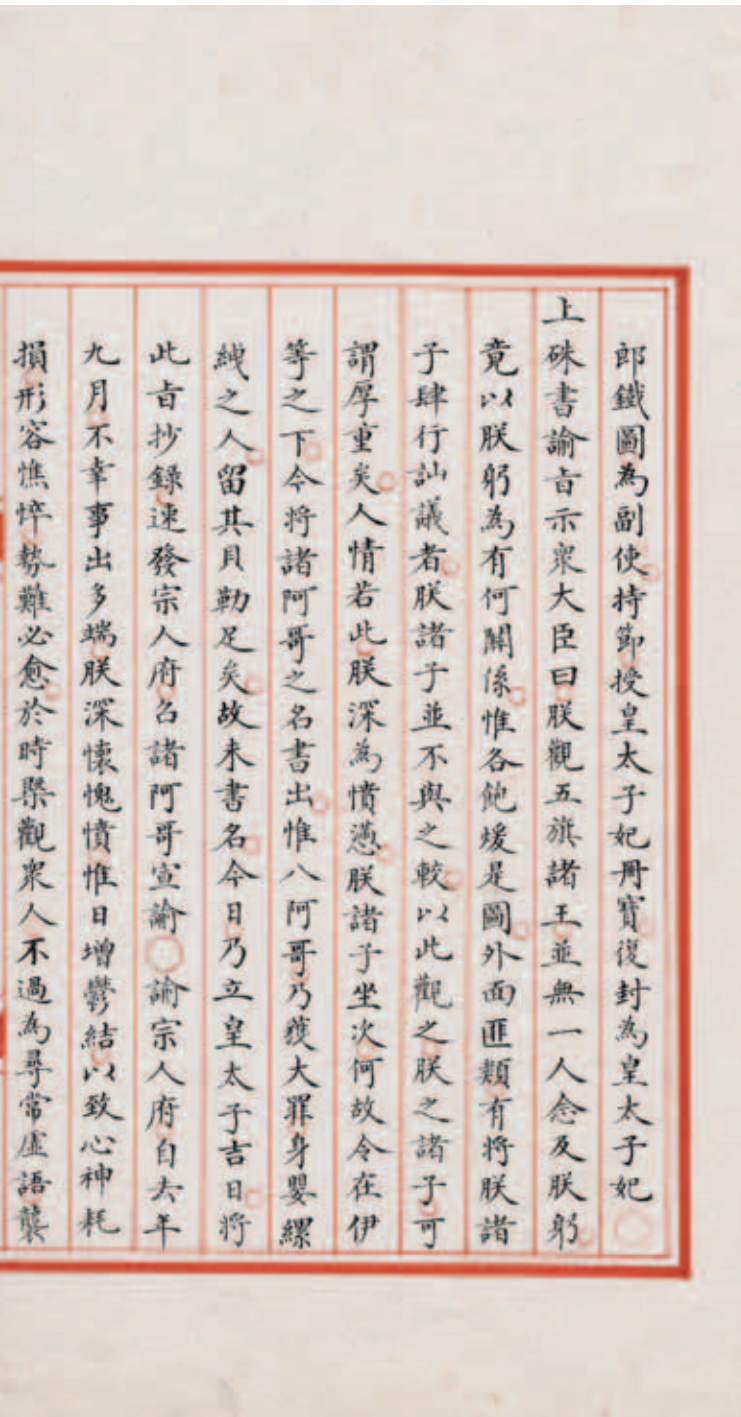 郎鐵圖為副使持節授皇太子妃冊寶復封為皇太子妃
上硃書諭旨示衆大臣曰朕觀五旗諸王並無一人念及朕躬
竟以朕躬為有何關係惟各飽煖是圖外面匪類有將朕諸
子肆行訕議者朕諸子並不與之較以此觀之朕之諸子可
謂厚重矣人情若此朕深為憤懣朕諸子坐次何故令在伊
等之下今將諸阿哥之名書出惟八阿哥乃獲大罪身嬰縲
絏之人留其貝勒足矣故未書名今日乃立皇太子吉日將
此旨抄錄速發宗人府召諸阿哥宣諭○諭宗人府自去年
九月不幸事出多端朕深懷愧憤惟日增鬱結以致心神耗
損形容憔悴勢難必愈於時槩觀衆人不過為尋常虛語襲